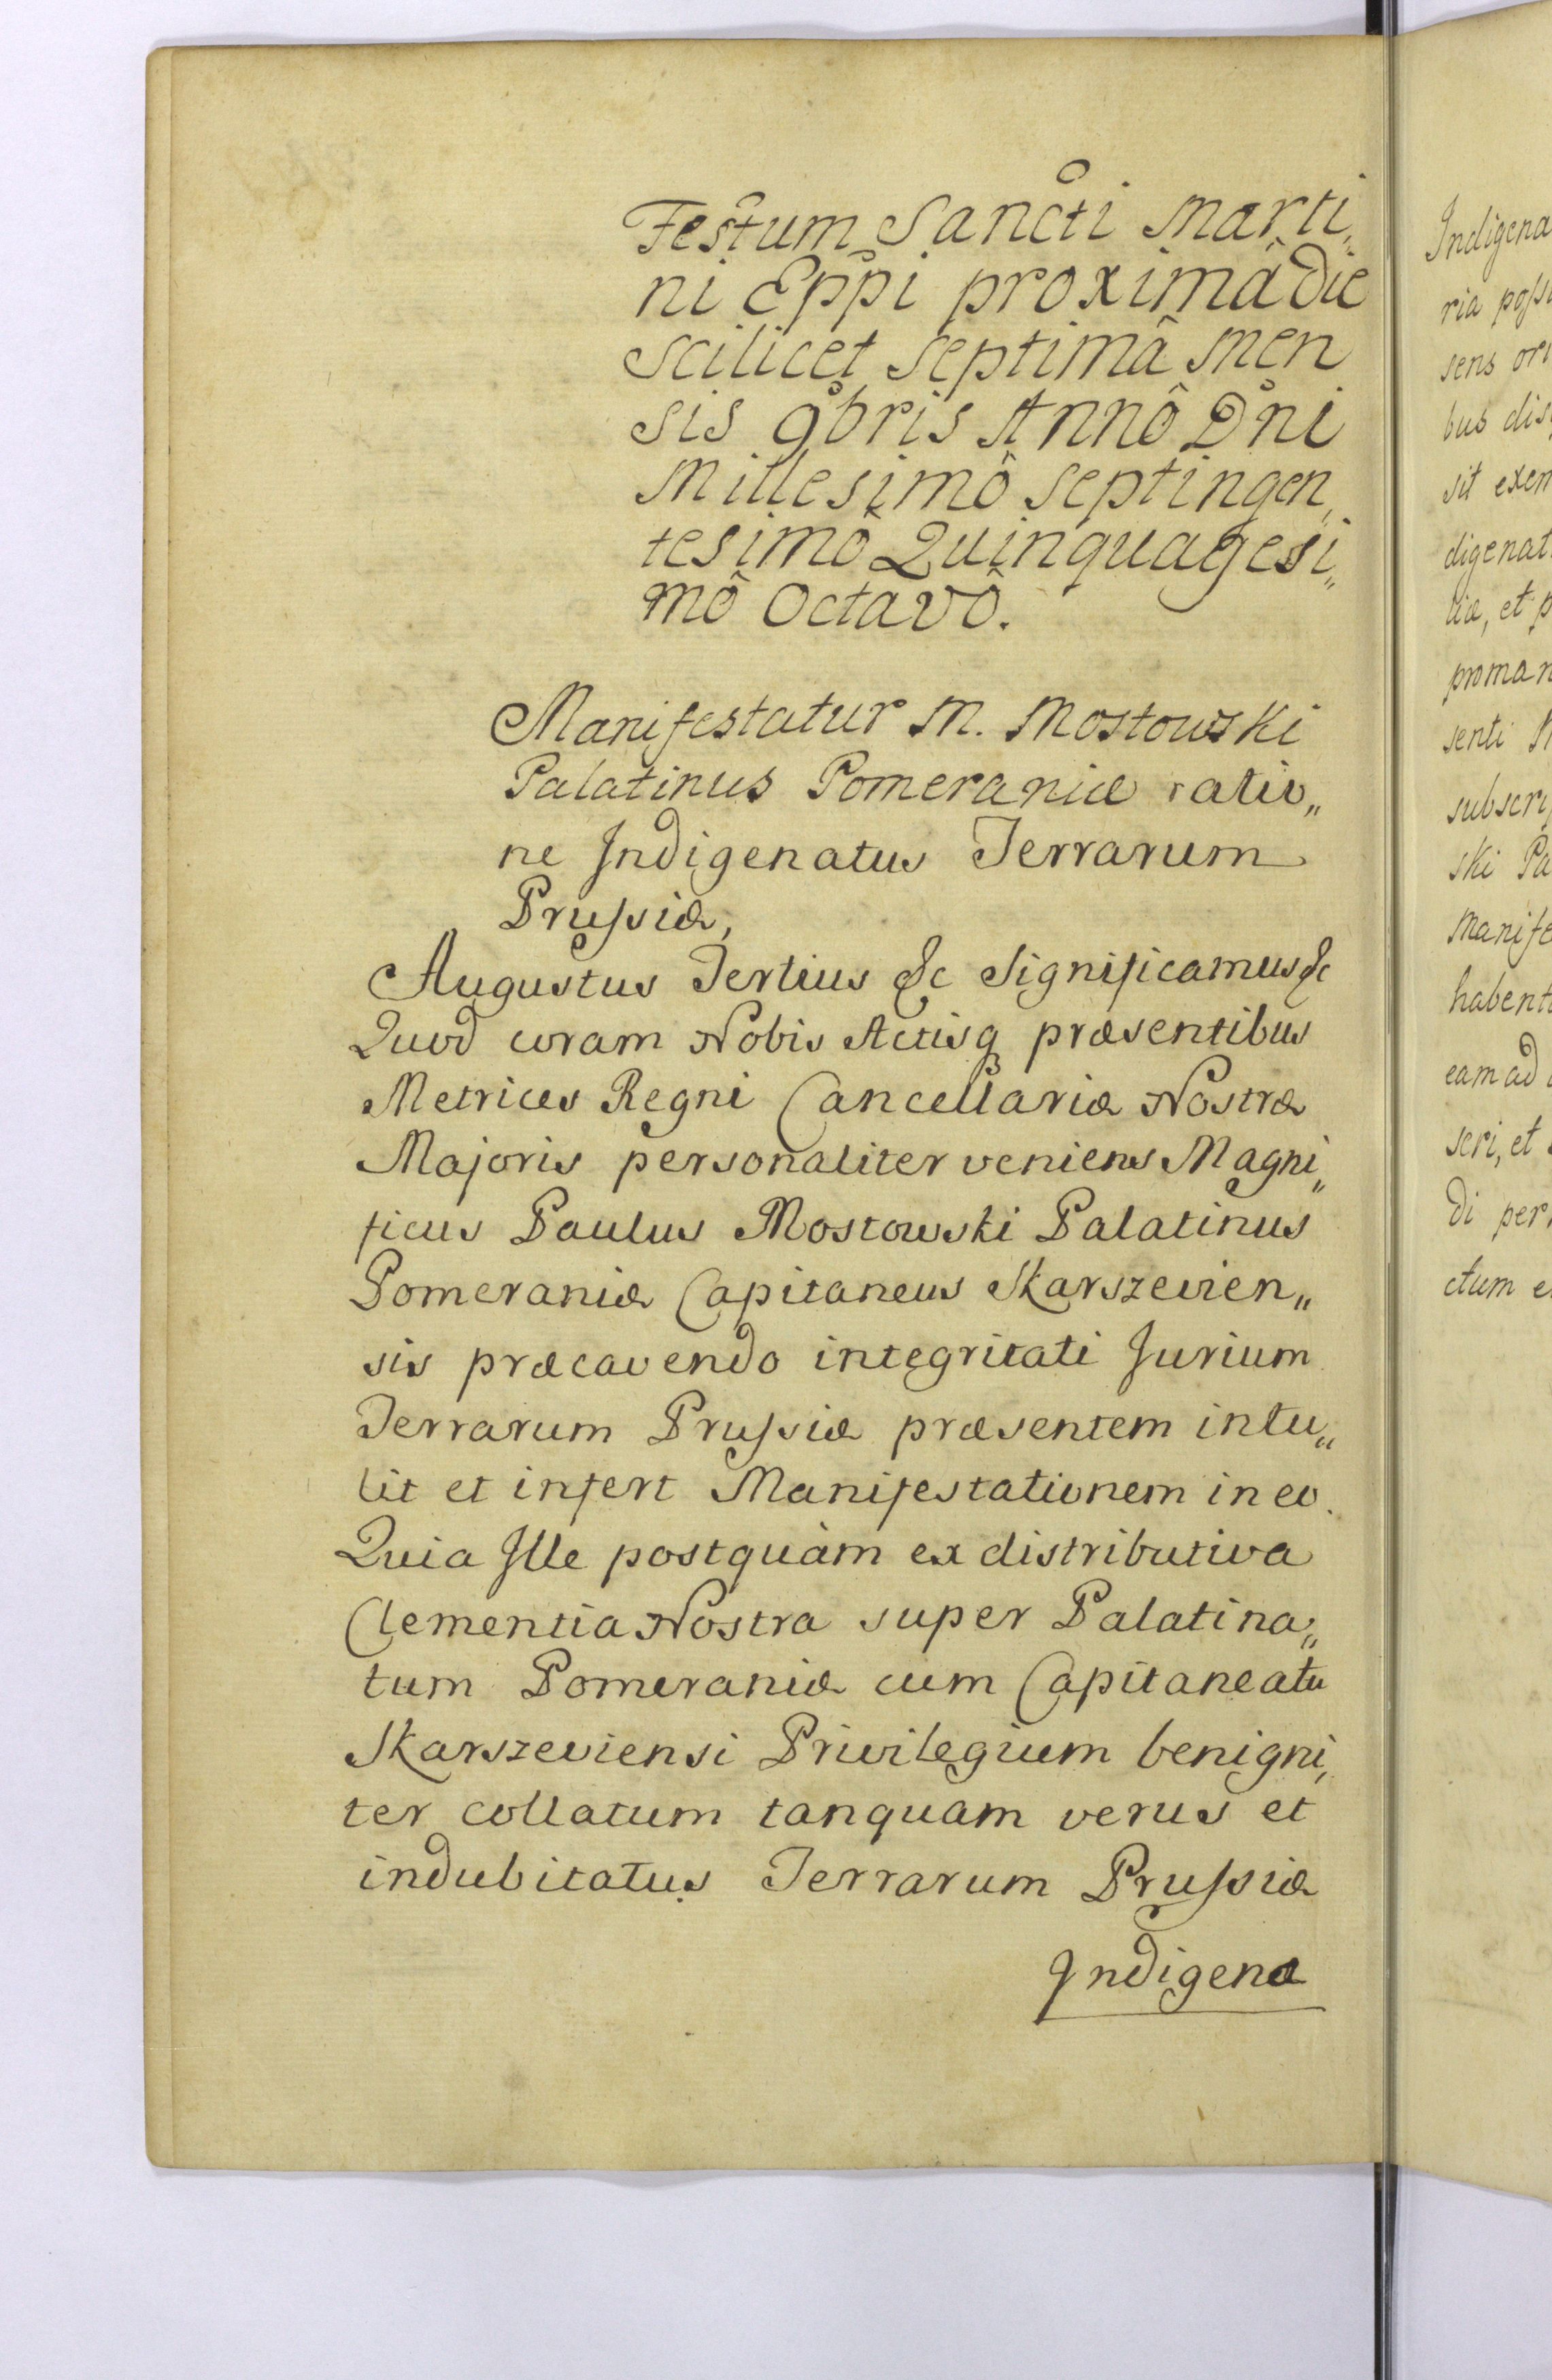 Festum Sancti Marti„
ni Eppi proximâ die
scilicet septimâ Men
sis 9bris Annô Dni
Millesimô septingen„
tesimô Quinquagesi„
mô Octavô.
Manifestatur M. Mostowski
Palatinus Pomeraniæ ratio„
ne Indigenatus Terrarum
Prussiæ,
Augustus Tertius &c Significamus &c
Quod coram Nobis Actisq præsentibus
Metrices Regni Cancellariæ Nostræ
Majoris personaliter veniens Magni„
ficus Paulus Mostowski Palatinus
Pomeraniæ Capitaneus Skarszevien„
sis præcavendo integritati Jurium
Terrarum Prussiæ præsentem intu„
lit et infert Manifestationem in eo.
Quia Ille postquàm ex distributiva
Clementia Nostra super Palatina„
tum Pomeraniæ cum Capitaneatu
Skarszeviensi Privilegium benigni„
ter collatum tanquam verus et
indubitatus Terrarum Prussiæ
Indigena
Indigena
ria poss
sens ori
bus dis
sit exem
digenat
tiæ, et p
proman
senti M
subscri
ski Pa
Manife
habent
eam ad
seri, et
di per
ctum e